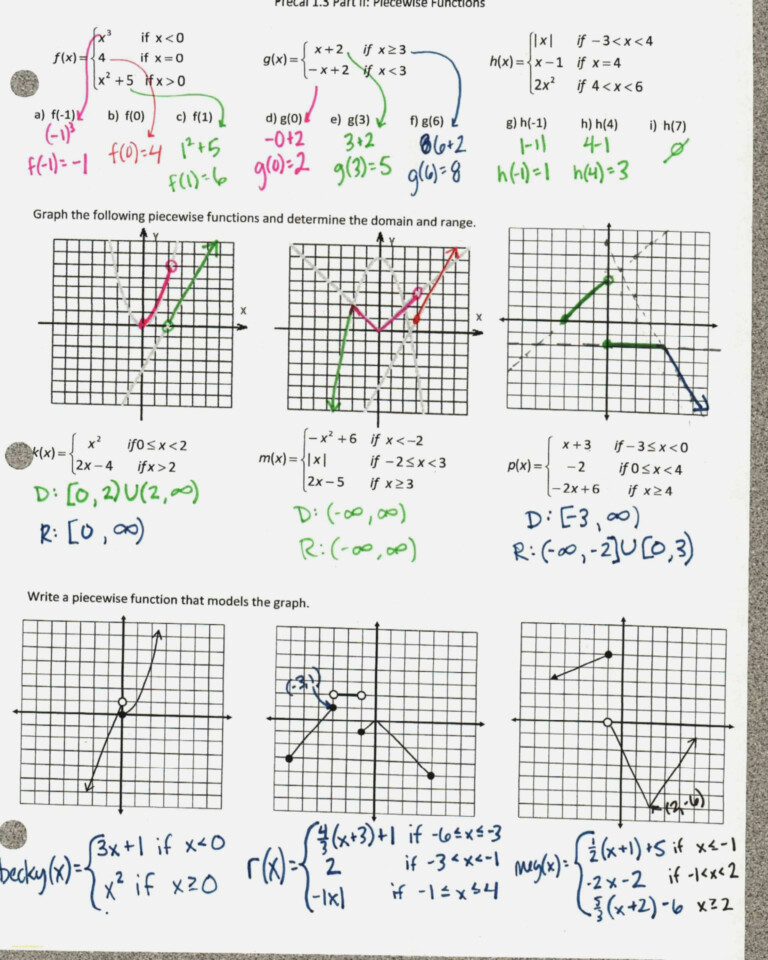 Precal 1.3 Part II: Piecewise Functions
f(x)= { x³ if x<0
4 if x=0
x²+5 if x>0
g(x)= { x+2 if x≥3
−x+2 if x<3
h(x)= { |x| if −3<x<4
x−1 if x=4
2x² if 4<x<6
a) f(-1) b) f(0) c) f(1) d) g(0) e) g(3) f) g(6) g) h(-1) h) h(4) i) h(7)
(-1)³ 1²+5 -0+2 3+2 6+2 |-1| 4-1 ∅
f(-1)=-1 f(0)=4 f(1)=6 g(0)=2 g(3)=5 g(6)=8 h(-1)=1 h(4)=3
Graph the following piecewise functions and determine the domain and range.
y y
x x
k(x)= { x² if 0≤x<2
2x−4 if x>2
m(x)= { −x²+6 if x<−2
|x| if −2≤x<3
2x−5 if x≥3
p(x)= { x+3 if −3≤x<0
−2 if 0≤x<4
−2x+6 if x≥4
D: [0,2)∪(2,∞)
R: [0,∞)
D: (-∞,∞)
R: (-∞,∞)
D: [-3,∞)
R: (-∞,-2]∪[0,3)
Write a piecewise function that models the graph.
(-3,1)
(2,-6)
becky(x)= { 3x+1 if x<0
x² if x≥0
r(x)= { 4/3(x+3)+1 if -6≤x≤-3
2 if -3<x<-1
-|x| if -1≤x≤4
meg(x)= { 1/2(x+1)+5 if x≤-1
-2x-2 if -1<x<2
5/3(x+2)-6 x≥2